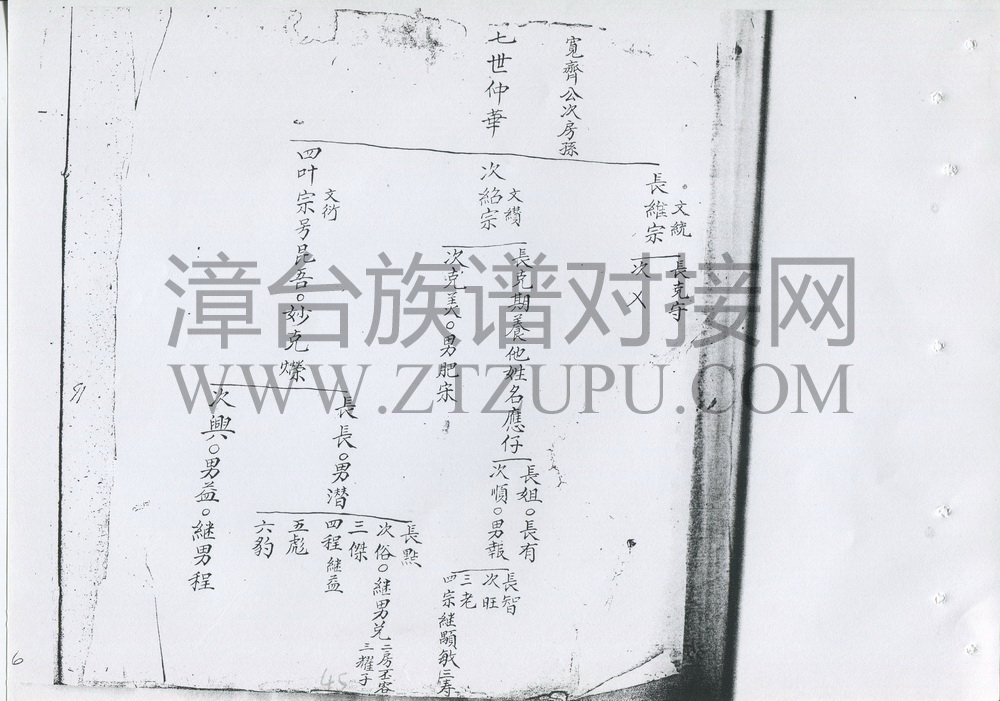 寬齊公次房孫
七世仲華
文統
長維宗
長克守
次乂
文纘
次紹宗
長克期養他姓名應仔
長姐。長有
次順。男報
長智
次旺
三老
四宗継顯敏三寿
次克美。男肥宋
文衍
四叶宗号昆吾。妙克爍
長長。男潛
長點
次俗。継男兑二房丕容三耀子
三傑
四程継益
五彪
六豹
次興。男益。継男程
漳台族谱对接网
WWW.ZTZUPU.COM
45
6